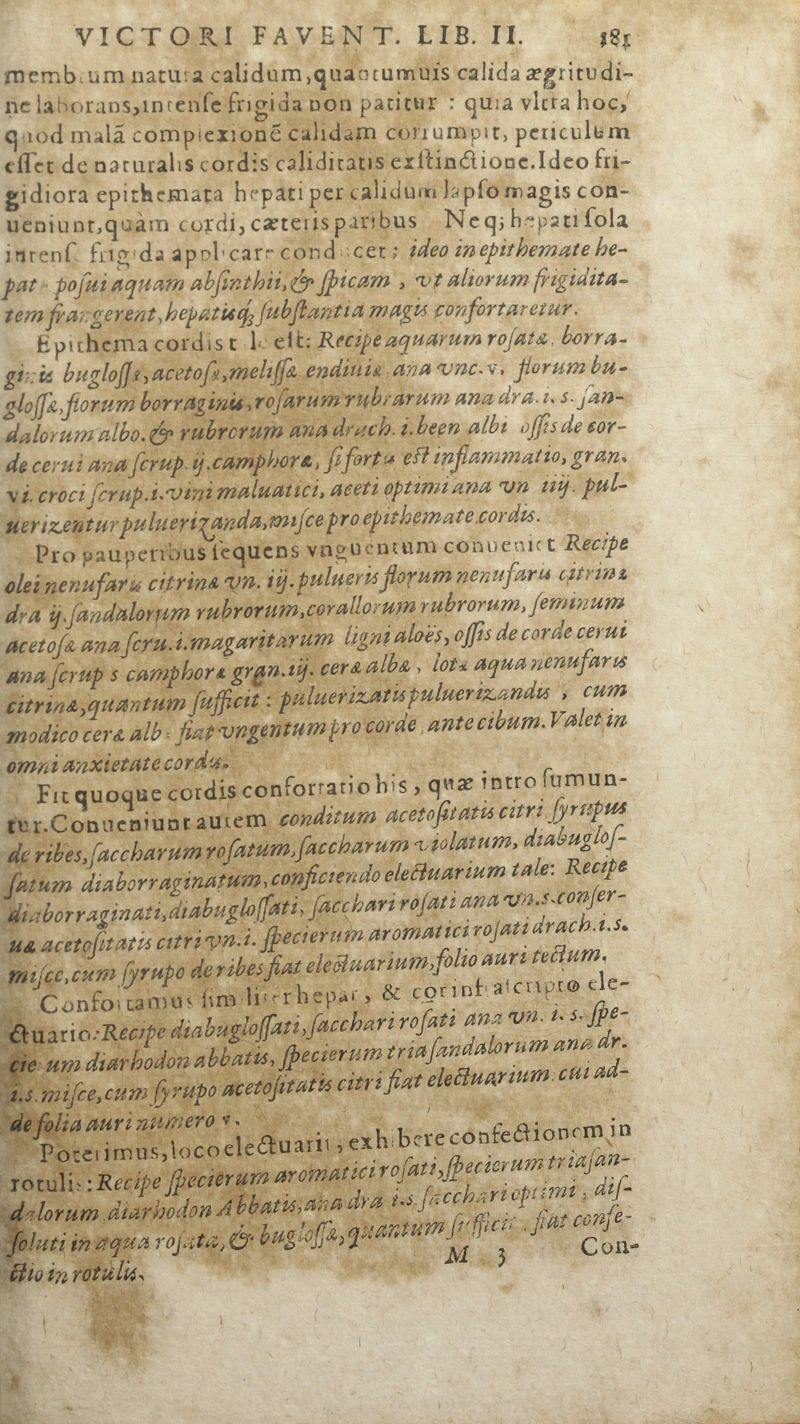 VICTORI FAVENT. LIB. II. 181
memb um natura calidum, quantumuis calida ægritudi-
ne laborans, intense frigida non patitur : quia vltra hoc,
quod malã complexionẽ calidam corrumpit, periculum
esset de naturalis cordis caliditatis exstinctione. Ideo fri-
gidiora epithemata hepati per calidum lapso magis con-
ueniunt, quàm cordi, cæteris paribus Neq; hepati sola
intens frigida applicare cond cet; ideo in epithemate he-
pat posui aquam absinthii, & spicam , vt aliorum frigidita-
tem frangerent, hepatisq; substantia magis confortaretur.
Epithema cordis t l est: Recipe aquarum rosatæ, borra-
ginis buglossæ, acetosæ, melissæ endiuiæ ana vnc. v. florum bu-
glossæ, florum borraginis, rosarum rubrarum ana dra. i. s. san-
dalorum albo. & rubrorum ana drach. i. been albi ossis de cor-
de cerui ana scrup. ij. camphoræ, si fortis est inflammatio, gran.
vi. croci scrup. i. vini maluatici, aceti optimi ana vn iiij. pul-
uerizentur puluerizanda, misce pro epithemate cordis.
Pro pauperibus sequens vnguentum conueniet Recipe
olei nenufaris citrinæ vn. iij. pulueris florum nenufaris citrinæ
dra ij. sandalorum rubrorum, corallorum rubrorum, seminum
acetosæ ana scru. i. magaritarum ligni aloës, ossis de corde cerui
ana scrup s camphoræ gran. iij. ceræ albæ, lotæ aqua nenufaris
citrinæ, quantum sufficit : puluerizatis puluerizandis , cum
modico ceræ alb fiat vngentum pro corde, ante cibum. Valet in
omni anxietate cordis.
Fit quoque cordis confortatio his, quæ intro sumun-
tur. Conueniunt autem conditum acetositatis citri syrupus
de ribes, saccharum rosatum, saccharum violatum, diabuglos-
satum diaborraginatum, conficiendo electuarium tale: Recipe
diaborraginati, diabuglossati, sacchari rosati ana vn. s. conser-
uæ acetositatis citri vn. i. specierum aromatici rosati drach. i. s.
misce, cum syrupo de ribes fiat electuarium, folio auri tectum.
Confortamus hepar, & ascripto ele-
ctuario: Recipe diabuglossati, sacchari rosati ana vn. i. s. spe-
cie um diarhodon abbatis, specierum triasandalorum ana dr.
i. s. misce, cum syrupo acetositatis citri fiat electuarium. cui ad-
de folia auri numero v.
Poterimus, loco electuarii, exhibere confectionem in
rotulis: Recipe specierum aromatici rosati, specierum triasan-
dalorum diarhodon Abbatis, ana dra i. s sacchari optimi, dis-
soluti in aqua rosata, & buglossæ, quantum sufficit. fiat confe-
ctio in rotulis. M 3 Con-